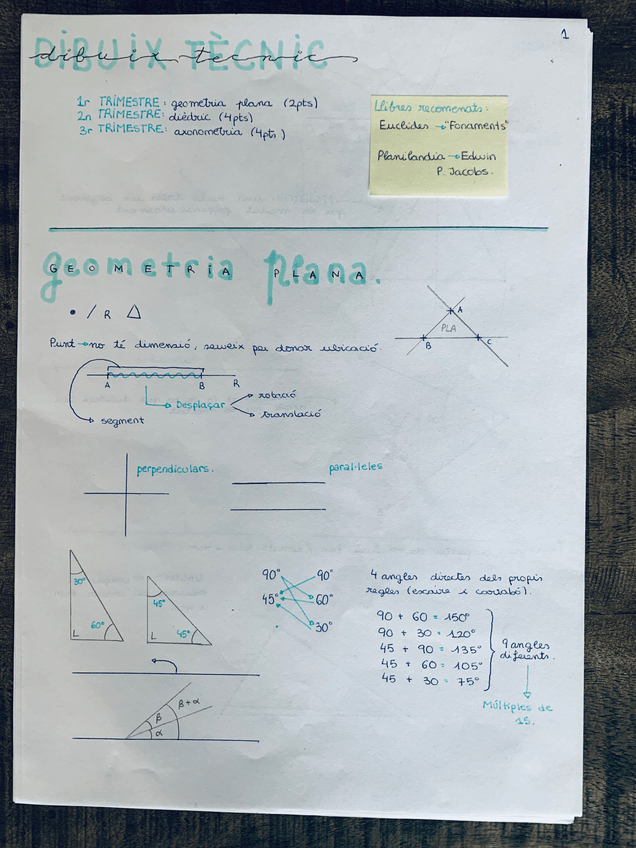 1
DIBUIX TÈCNIC
dibuix tècnic
1r TRIMESTRE: geometria plana (2pts)
2n TRIMESTRE: dièdric (4pts)
3r TRIMESTRE: axonometria (4pts)
Llibres recomenats:
Euclides → "Fonaments"
Planilandia → Edwin
P. Jacobs.
geometria plana.
GEOMETRIA PLANA
R
Punt → no té dimensió, serveix per donar ubicació.
A
PLA
B
C
A
B
R
Desplaçar
rotació
translació
segment
perpendiculars.
paral·leles
30°
60°
L
45°
45°
L
90°
90°
45°
60°
30°
4 angles directes dels propis
regles (escaire i cartabó).
90 + 60 = 150°
90 + 30 = 120°
45 + 90 = 135°
45 + 60 = 105°
45 + 30 = 75°
9 angles
diferents.
Múltiples de
15.
β+α
β
α